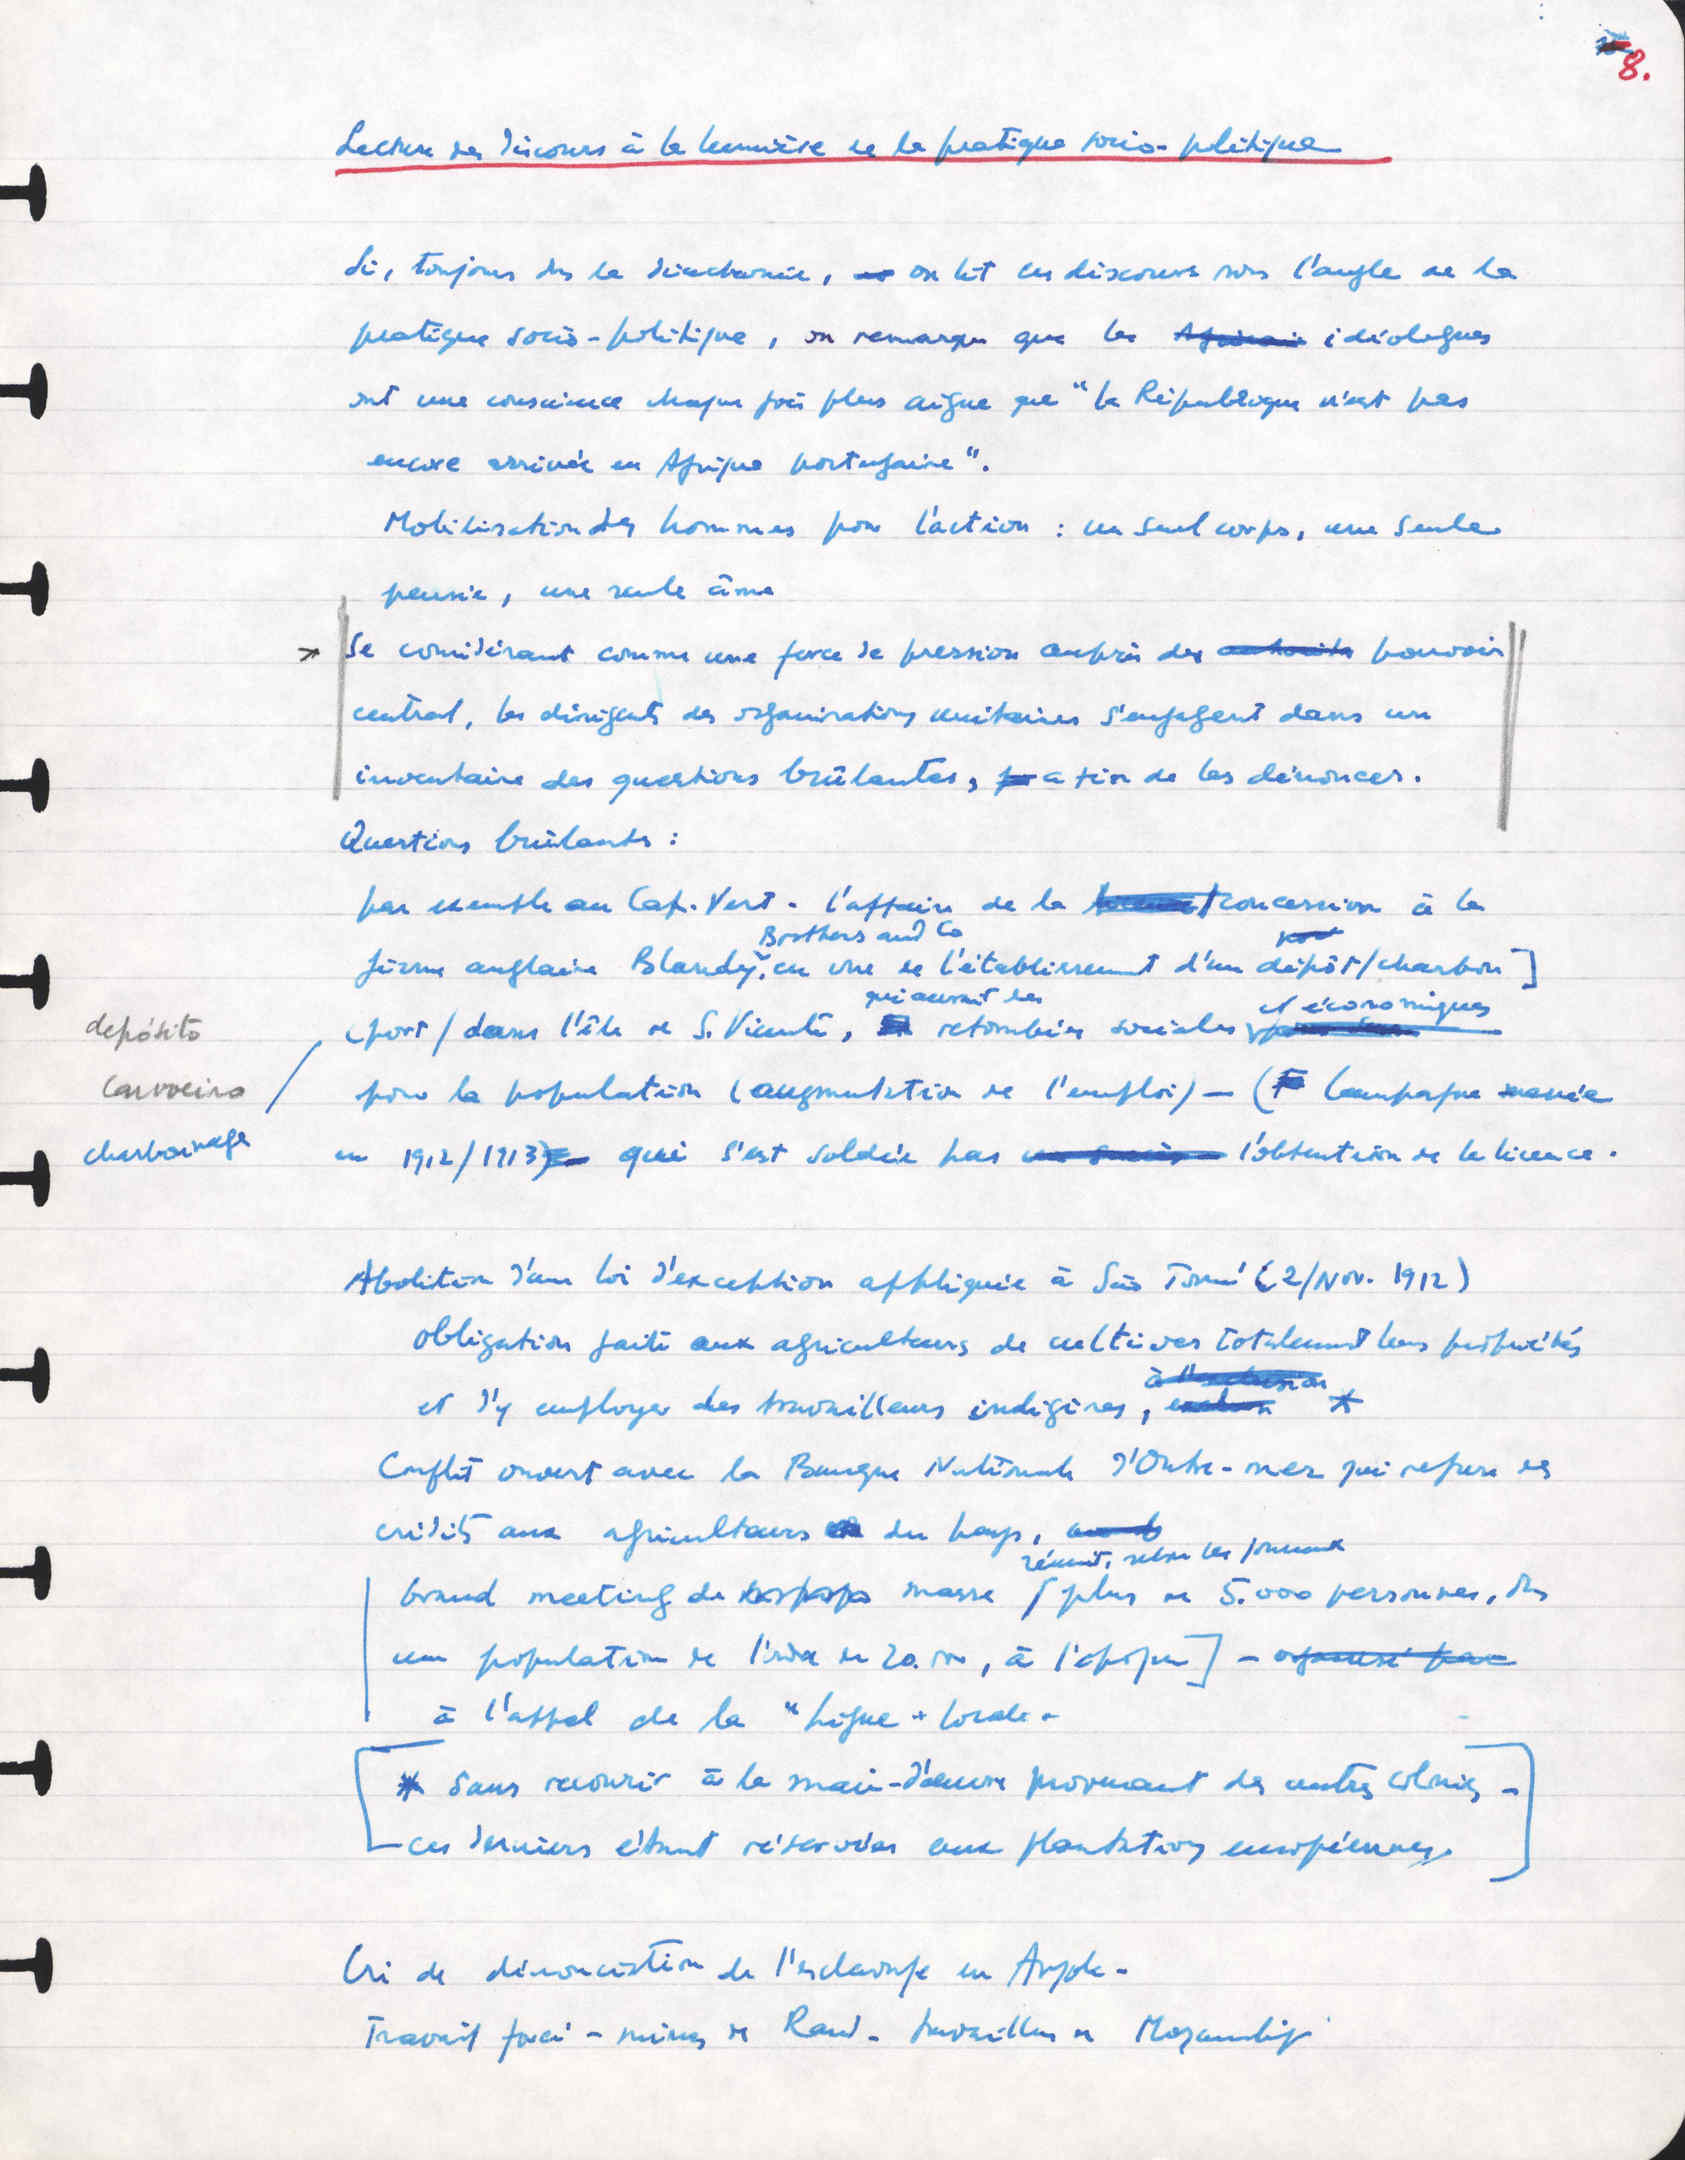 8.
Lecture des discours à la lumière de la pratique socio-politique
Si, toujours ds la diachronie, on lit les discours sous l'angle de la
pratique socio-politique, on remarque que les idéologues
ont une conscience chaque fois plus aigue que "la République n'est pas
encore arrivée en Afrique portugaise".
Mobilisation des hommes pour l'action : un seul corps, une seule
pensée, une seule âme
Se considérant comme une force de pression auprès des pouvoir
central, les dirigents des organisations unitaires s'engagent dans un
inventaire des questions brûlantes, afin de les dénoncer.
Questions brûlantes :
par exemple au Cap-Vert - l'affaire de la concession à la
Brothers and Co
firme anglaise Blandy, en vue de l'établissement d'un dépôt/charbon]
qui aurait des
et économiques
depósito
(port/ dans l'île de S. Vicente, retombées sociales
carvoeiro
pour la population (augmentation de l'emploi) - ( Campagne menée
charbonnage
en 1912/1913) qui s'est soldée par l'obtention de la licence.
Abolition d'une loi d'exception appliquée à São Tomé (2/Nov. 1912)
obligation faite aux agriculteurs de cultiver totalement leurs propriétés
et d'y employer des travailleurs indigènes, *
Conflit ouvert avec la Banque Nationale d'Outre-mer qui refuse des
crédits aux agriculteurs du pays,
réunit, selon les journaux
Grand meeting de masse [plus de 5.000 personnes, ds
une population de l'ordre de 20.000, à l'époque] -
à l'appel de la "Ligue" locale -
* sans recourir à la main-d'œuvre provenant des autres colonies -
ces derniers étant réservées aux plantations européennes.
Cri de dénonciation de l'esclavage en Angola -
Travail forcé - mines de Rand - travailleurs de Mozambique